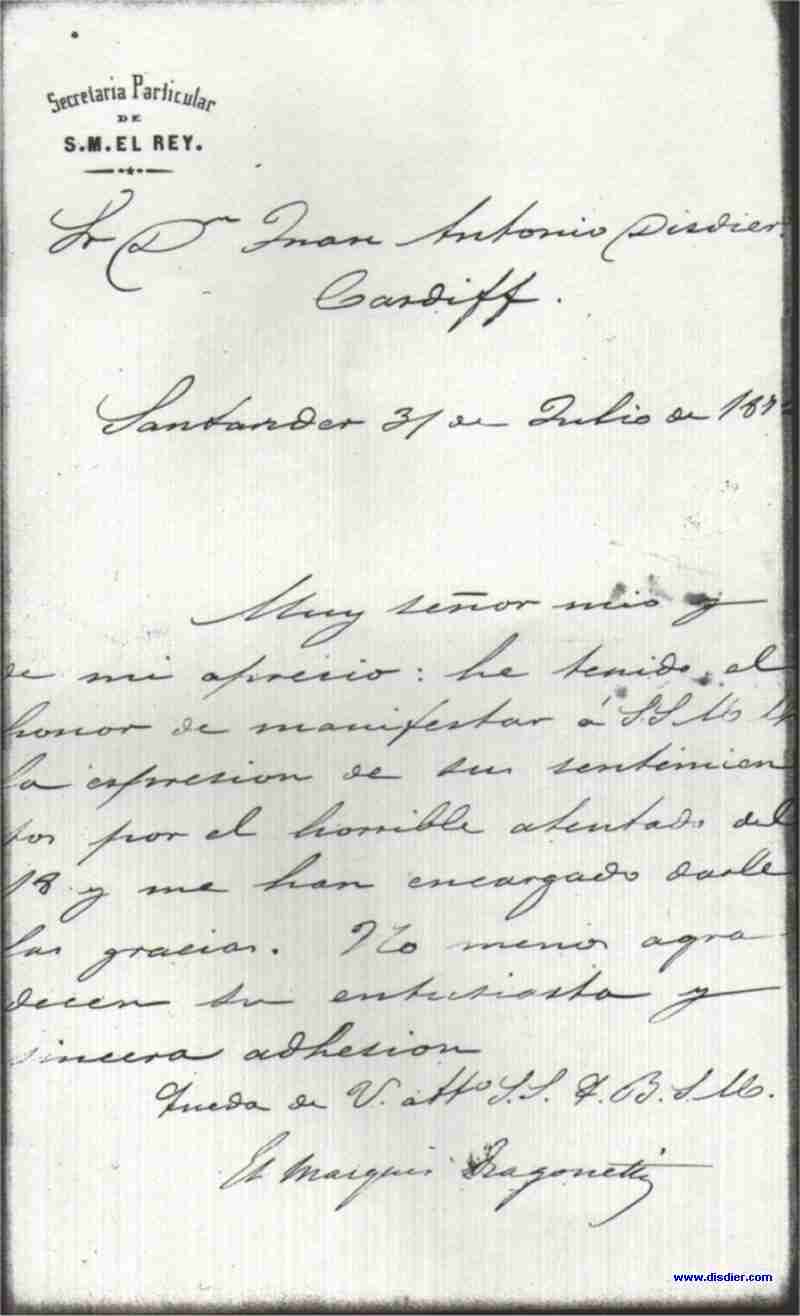 Secretaria Particular
DE
S.M. EL REY.
Sr Dn Juan Antonio Disdier.
Cardiff.
Santander 31 de Julio de 187
Muy señor mio y
de mi aprecio: he tenido el
honor de manifestar á SS MM
la espresion de sus sentimien
tos por el horrible atentado del
18 y me han encargado darle
las gracias. No menos agra-
decen su entusiasta y
sincera adhesion
Queda de V. atto S.S. Q. B. S. M.
El Marques Dragonetti
www.disdier.com